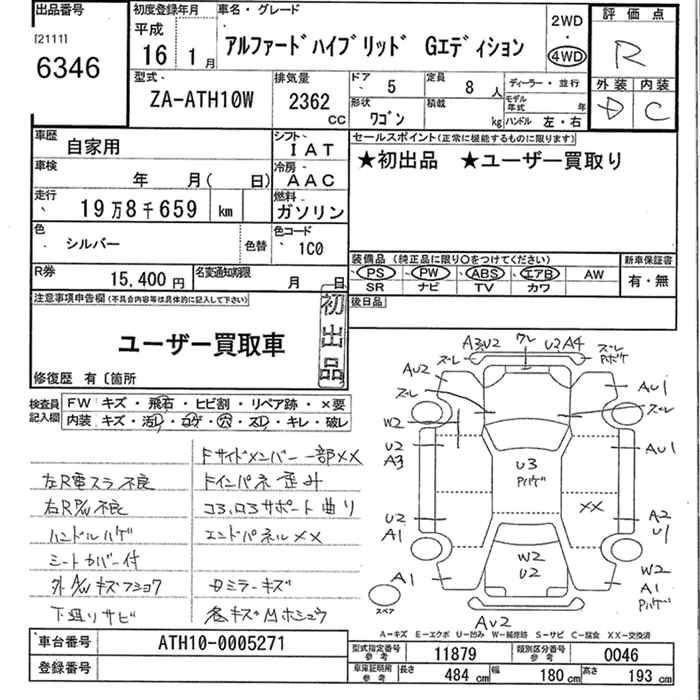 出品番号
[2111]
6346
初度登録年月
平成
16 1月
車名・グレード
アルファードハイブリッド Gエディション
2WD
・
4WD
評価点
R
外装 内装
D C
型式
ZA-ATH10W
排気量
2362
cc
ドア
5
定員
8人
ディーラー・並行
形状
ワゴン
積載
kg
モデル年式 年
ハンドル 左・右
車歴
自家用
シフト
IAT
車検
年 月( 日)
冷房
AAC
走行
19万8千659 km
燃料
ガソリン
色
シルバー
色替
色コード
1C0
R券
15,400円
名変通知期限
月 日
セールスポイント(正常に機能するものに限ります)
★初出品 ★ユーザー買取り
装備品 (純正品に限り○をつけてください)
PS PW ABS エアB AW
SR ナビ TV カワ
新車保証書
有・無
後日品
注意事項申告欄(不具合内容等は具体的に記入して下さい)
ユーザー買取車
初出品
修復歴 有〔箇所
検査員記入欄
FW キズ・飛石・ヒビ割・リペア跡・×要
内装 キズ・汚レ・コゲ・穴・スレ・キレ・破レ
Fサイドメンバー一部××
左R電スラ不良
Fインパネ歪み
右R P/W不良
コヨ,ロヨサポート曲り
ハンドルハゲ
エンドパネル××
シートカバー付
外A/Wキズフショク
Dミラーキズ
下廻りサビ
各キズMホシュウ
A3 U2
ワレ
U2 A4
ズレ
ズレ
Pボケ
AU2
AU1
ズレ
ズレ
W2
U2
A3
AU1
U3
Pハゲ
××
U2
A1
A2
U1
W2
U2
A1
W2
A1
Pハゲ
スペア
AU2
A-キズ E-エクボ U-凹み W-補修跡 S-サビ C-腐食 XX-交換済
車台番号
ATH10-0005271
登録番号
型式指定番号
参考
11879
類別区分番号
参考
0046
車庫証明用
参考
長さ
484cm
幅
180cm
高さ
193cm